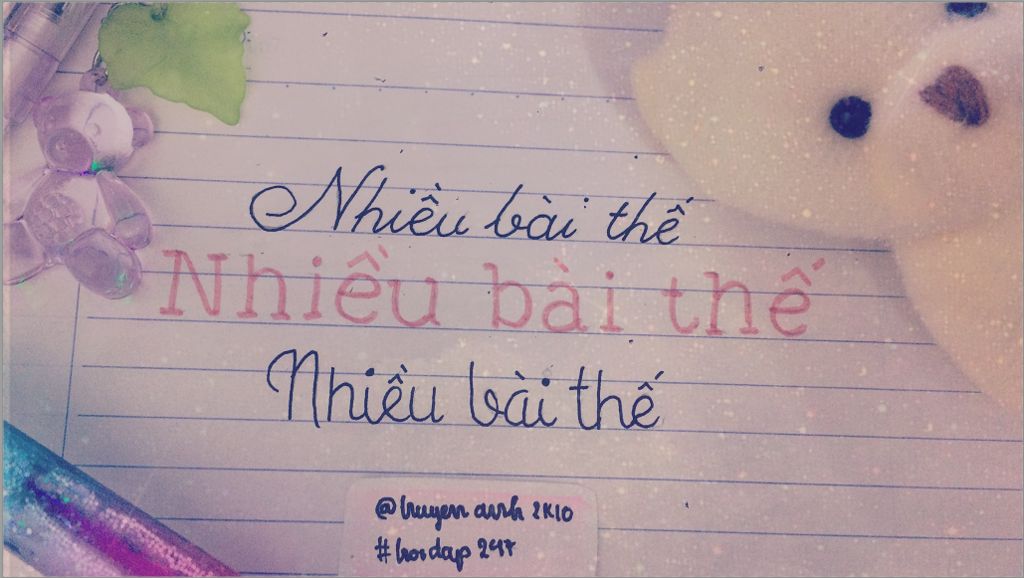 Nhiều bài thế
Nhiều bài thế
Nhiều bài thế
@huyen anh 2K10
#hoidap 247